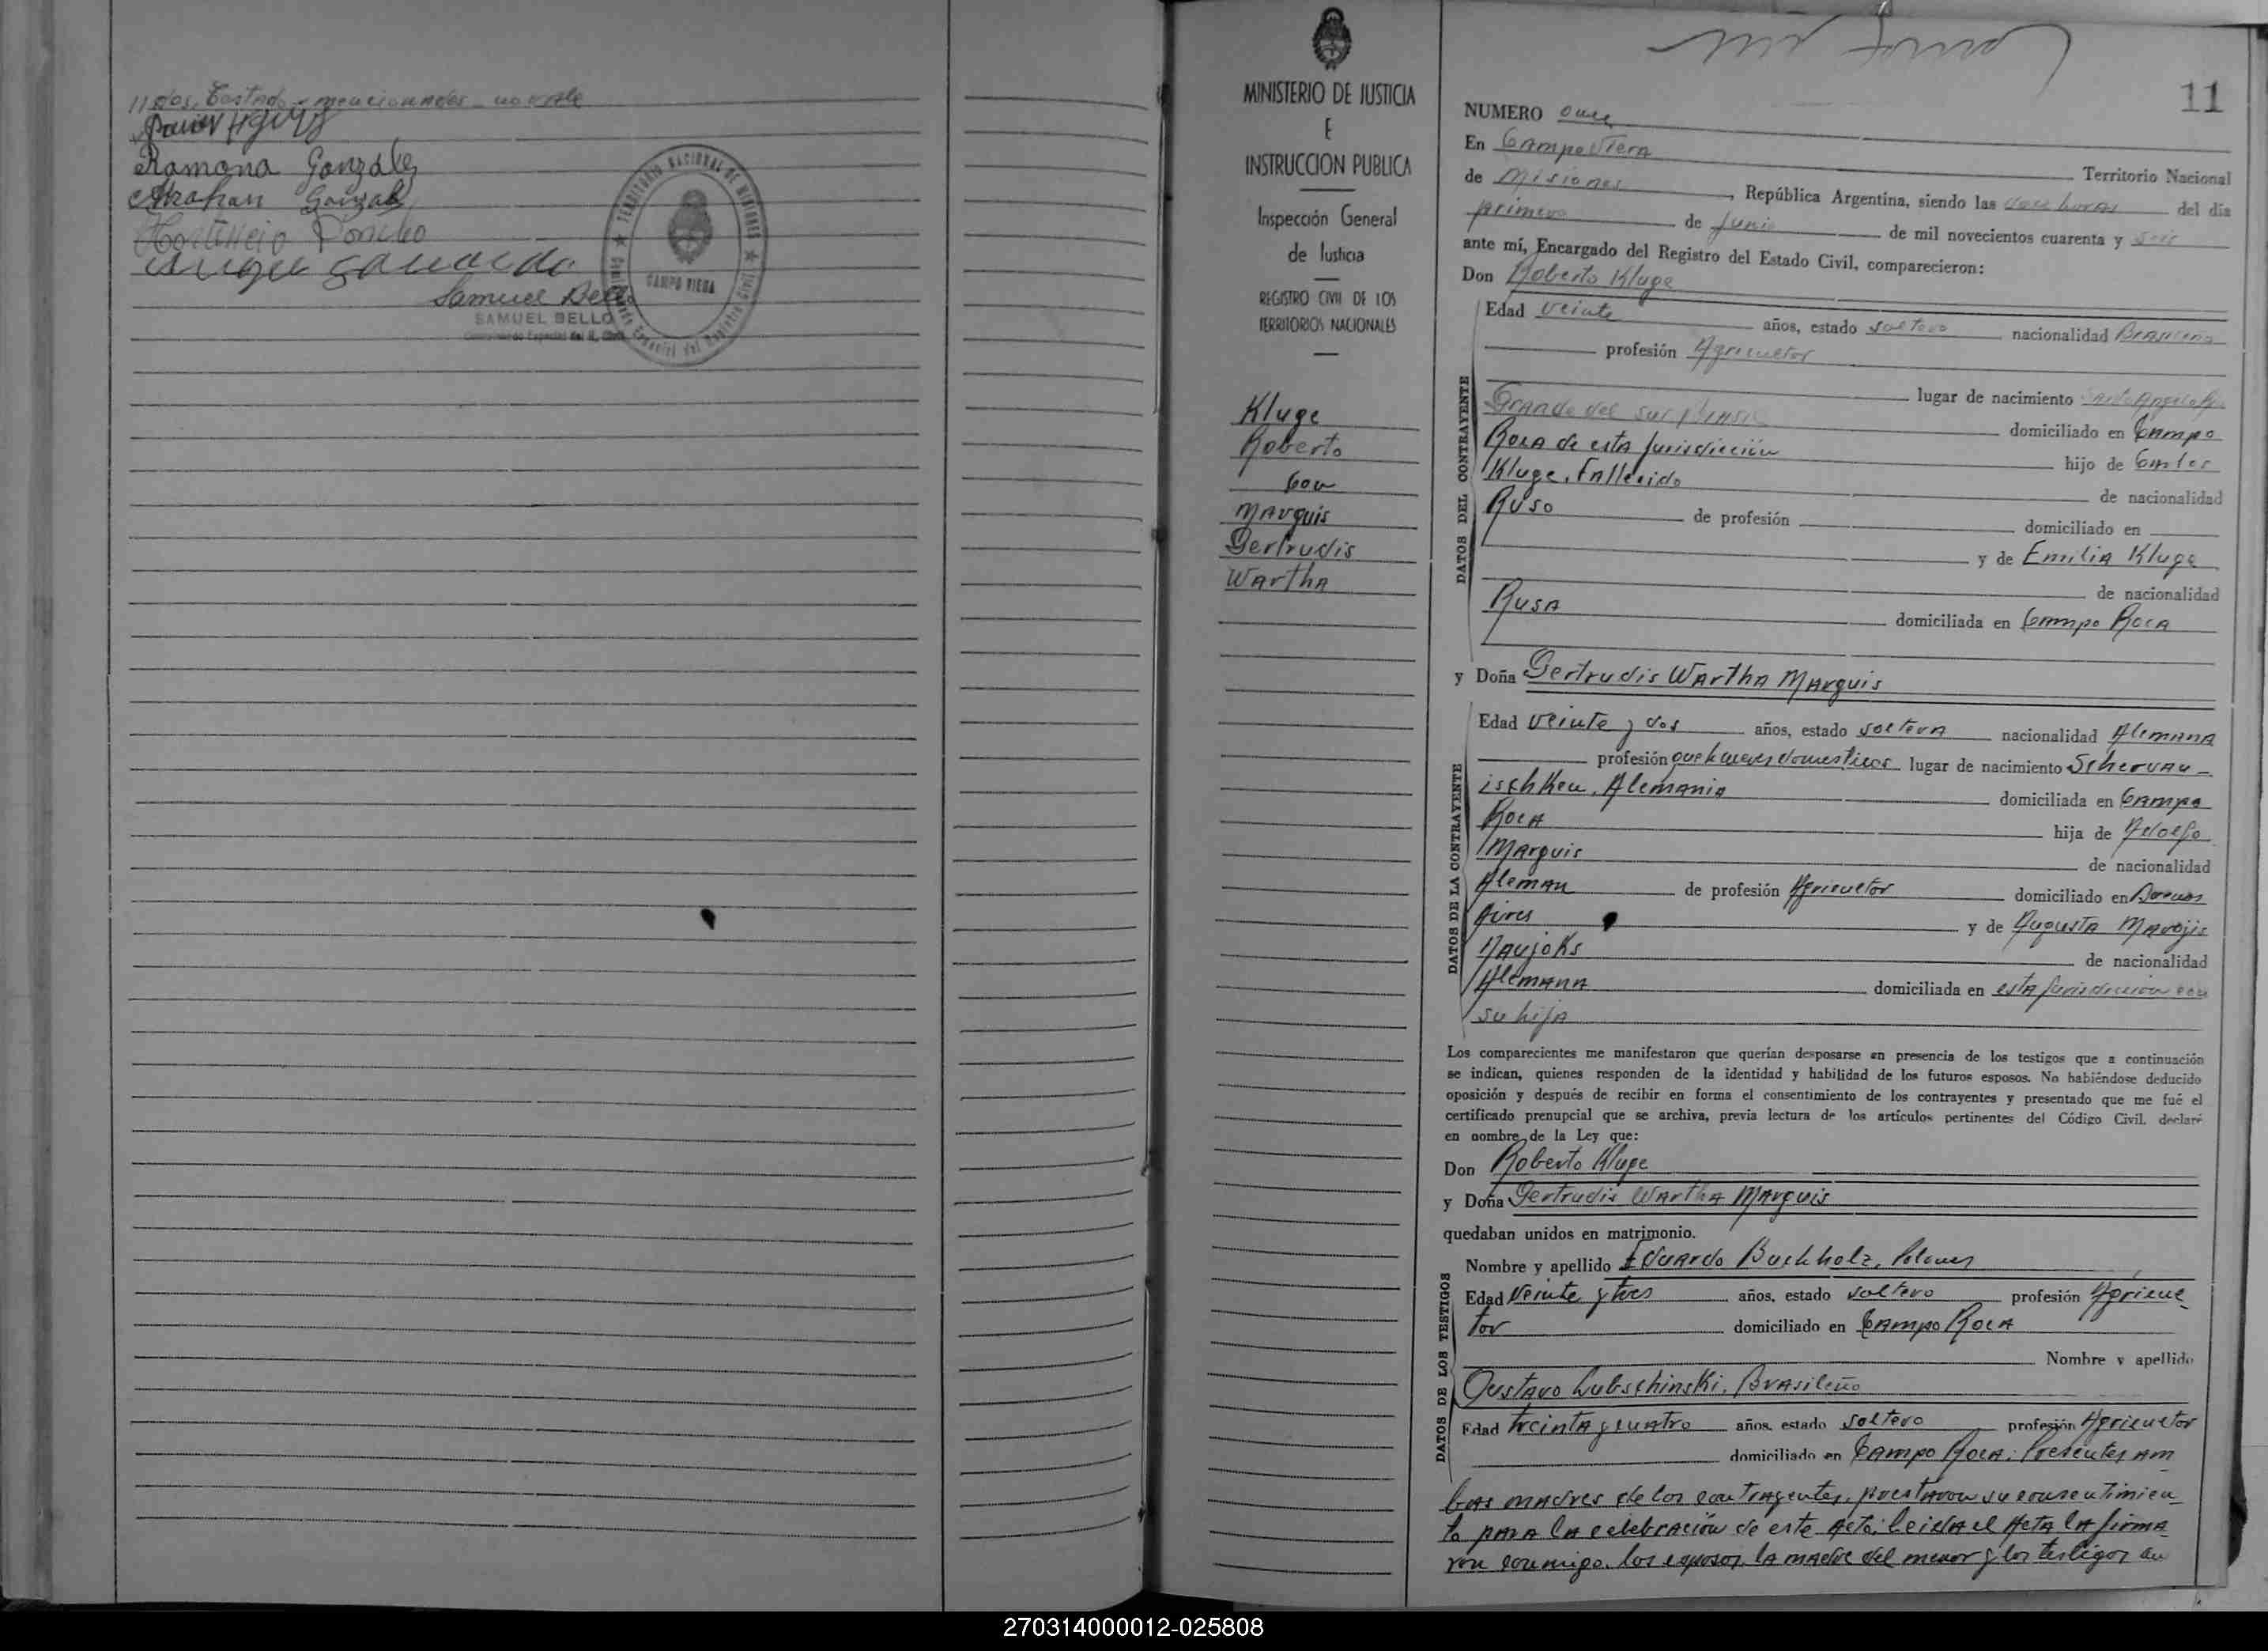 Ramona Gonzalez
Samuel Bello
SAMUEL BELLO
TERRITORIO NACIONAL DE MISIONES
CAMPO VIERA
MINISTERIO DE JUSTICIA
E
INSTRUCCION PUBLICA
Inspección General
de Justicia
REGISTRO CIVIL DE LOS
TERRITORIOS NACIONALES
Kluge
Roberto
con
Marquis
Gertrudis
Wartha
11
NUMERO once
En Campo Viera
Territorio Nacional
de Misiones, República Argentina, siendo las doce horas del día
primero de Junio de mil novecientos cuarenta y seis
ante mí, Encargado del Registro del Estado Civil, comparecieron:
Don Roberto Kluge
Edad veinte años, estado soltero nacionalidad Brasileña
profesión Agricultor
lugar de nacimiento
Grande del Sur Brasil domiciliado en Campo
Roca de esta Jurisdicción hijo de Carlos
Kluge, Fallecido de nacionalidad
Ruso de profesión domiciliado en
y de Emilia Kluge
de nacionalidad
Rusa domiciliada en Campo Roca
y Doña Gertrudis Wartha Marquis
Edad veinte y dos años, estado soltera nacionalidad Alemana
profesión quehaceres domesticos lugar de nacimiento Schervau-
ischken, Alemania domiciliada en Campo
Roca hija de Adolfo
Marquis de nacionalidad
Aleman de profesión Agricultor domiciliado en Buenos
Aires y de Augusta
Naujoks de nacionalidad
Alemana domiciliada en esta Jurisdiccion con
su hija
Los comparecientes me manifestaron que querían desposarse en presencia de los testigos que a continuación
se indican, quienes responden de la identidad y habilidad de los futuros esposos. No habiéndose deducido
oposición y después de recibir en forma el consentimiento de los contrayentes y presentado que me fué el
certificado prenupcial que se archiva, previa lectura de los artículos pertinentes del Código Civil, declaré
en nombre de la Ley que:
Don Roberto Kluge
y Doña Gertrudis Wartha Marquis
quedaban unidos en matrimonio.
Nombre y apellido Eduardo Buchholz, Polones
Edad veinte y tres años, estado soltero profesión Agricul-
tor domiciliado en Campo Roca
Nombre y apellido
Gustavo Lubschinski, Brasileño
Edad treinta y cuatro años, estado soltero profesión Agricultor
domiciliado en Campo Roca. Presentes am
bas madres de los contrayentes, prestaron su consentimien-
to para la celebración de este acto. Leida el Acta la firma
ron conmigo, los esposos, la madre del menor y los testigos an
DATOS DEL CONTRAYENTE
DATOS DE LA CONTRAYENTE
DATOS DE LOS TESTIGOS
270314000012-025808